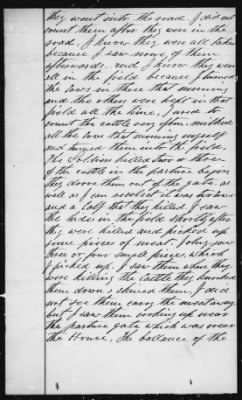 they went into the road. I did not
count them after they were in the
road. I know they were all taken
because I saw none of them
afterwards. and I know they were
all in the field because I turned
the cows in there that morning
and the others were kept in that
field all the time, I used to
count the cattle very often, milked
all the cows that morning myself
and turned them into the field.
The Soldiers killed two or three
of the cattle in the pasture before
they drove them out of the gate. as
well as I can recollect it was two cows
and a calf that they killed. I saw
the hides in the field shortly after
they were killed and picked up
some pieces of meat.
three or four small pieces which
I picked up. I saw them when they
were killing the cattle they knocked
them down & skinned them, I did
not see them carry the meat away
but I saw them cooking up near
the pasture gate which was near
the House. The ballance of the